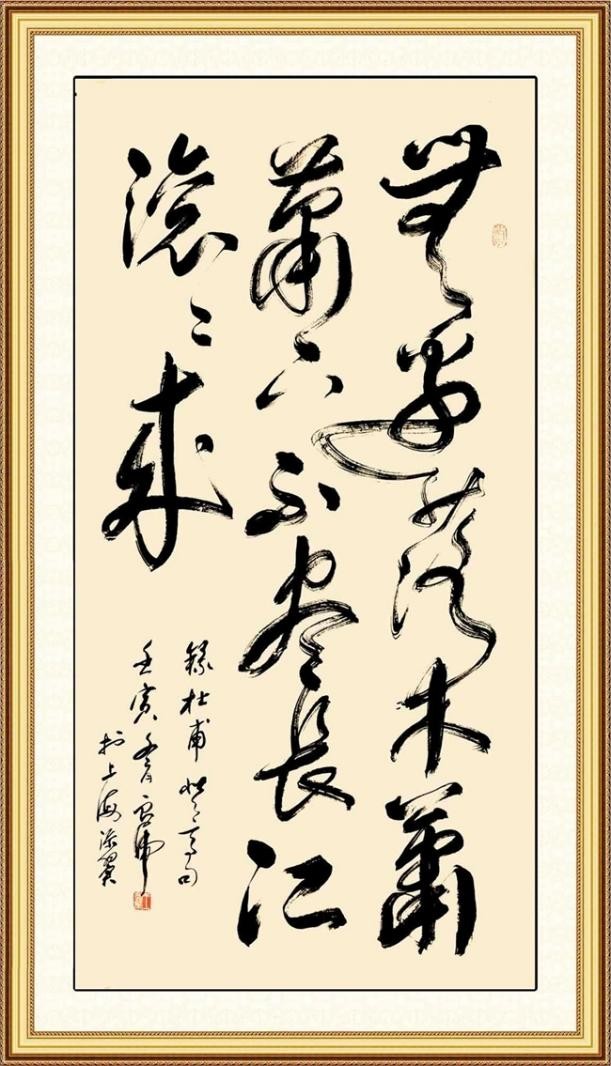 無邊落木蕭
蕭下不盡長江
滾々來
錄杜甫登高句
壬寅冬
於上海